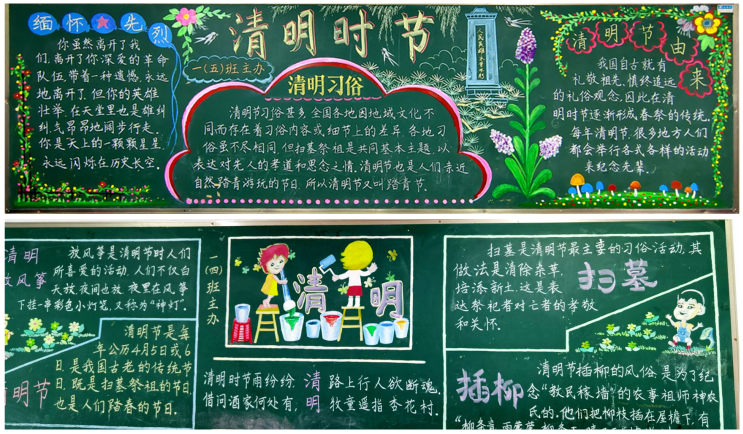 缅怀★先烈
你虽然离开了我
们,离开了你深爱的革命
队伍,带着一种遗憾,永远
地离开了,但你的英雄
壮举,在天堂里也是雄纠
纠,气昂昂地阔步行走,
你是天上的一颗颗星星
永远闪烁在历史长空。
清明时节
一(五)班主办
清明习俗
清明节习俗甚多,全国各地因地域文化不
同而存在着习俗内容或细节上的差异,各地习
俗虽不尽相同,但扫墓祭祖是共同基本主题,以
表达对先人的孝道和思念之情。清明节也是人们亲近
自然、踏青游玩的节日,所以清明节又叫踏青节。
清明节由来
我国自古就有
礼敬祖先,慎终追远
的礼俗观念,因此在清
明时节逐渐形成春祭的传统。
每年清明节,很多地方人们
都会举行各式各样的活动
来纪念先辈。
清明
放风筝
放风筝是清明节时人们
所喜爱的活动,人们不仅白
天放,夜间也放,夜里在风筝
下挂一串彩色小灯笼,又称为“神灯”。
清明节是每
年公历4月5日或6
日,是我国古老的传统节
日,既是扫墓祭祖的节日,
也是人们踏春的节日。
明节
一(四)班主办
清明
清明时节雨纷纷,
路上行人欲断魂。
借问酒家何处有,
牧童遥指杏花村。
清明
扫墓是清明节最主要的习俗活动,其
做法是清除杂草,
培添新土,这是表
达祭祀者对亡者的孝敬
和关怀。
扫墓
插柳
清明节插柳的风俗,是为了纪
念“教民稼墙”的农事祖师神农
氏的。他们把柳枝插在屋檐下,有